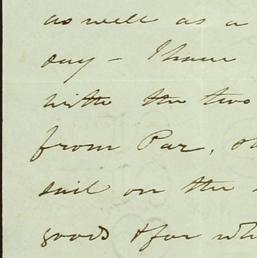 as well as a
day – I have
with the two
from Par,
sail on the
goods &for wh